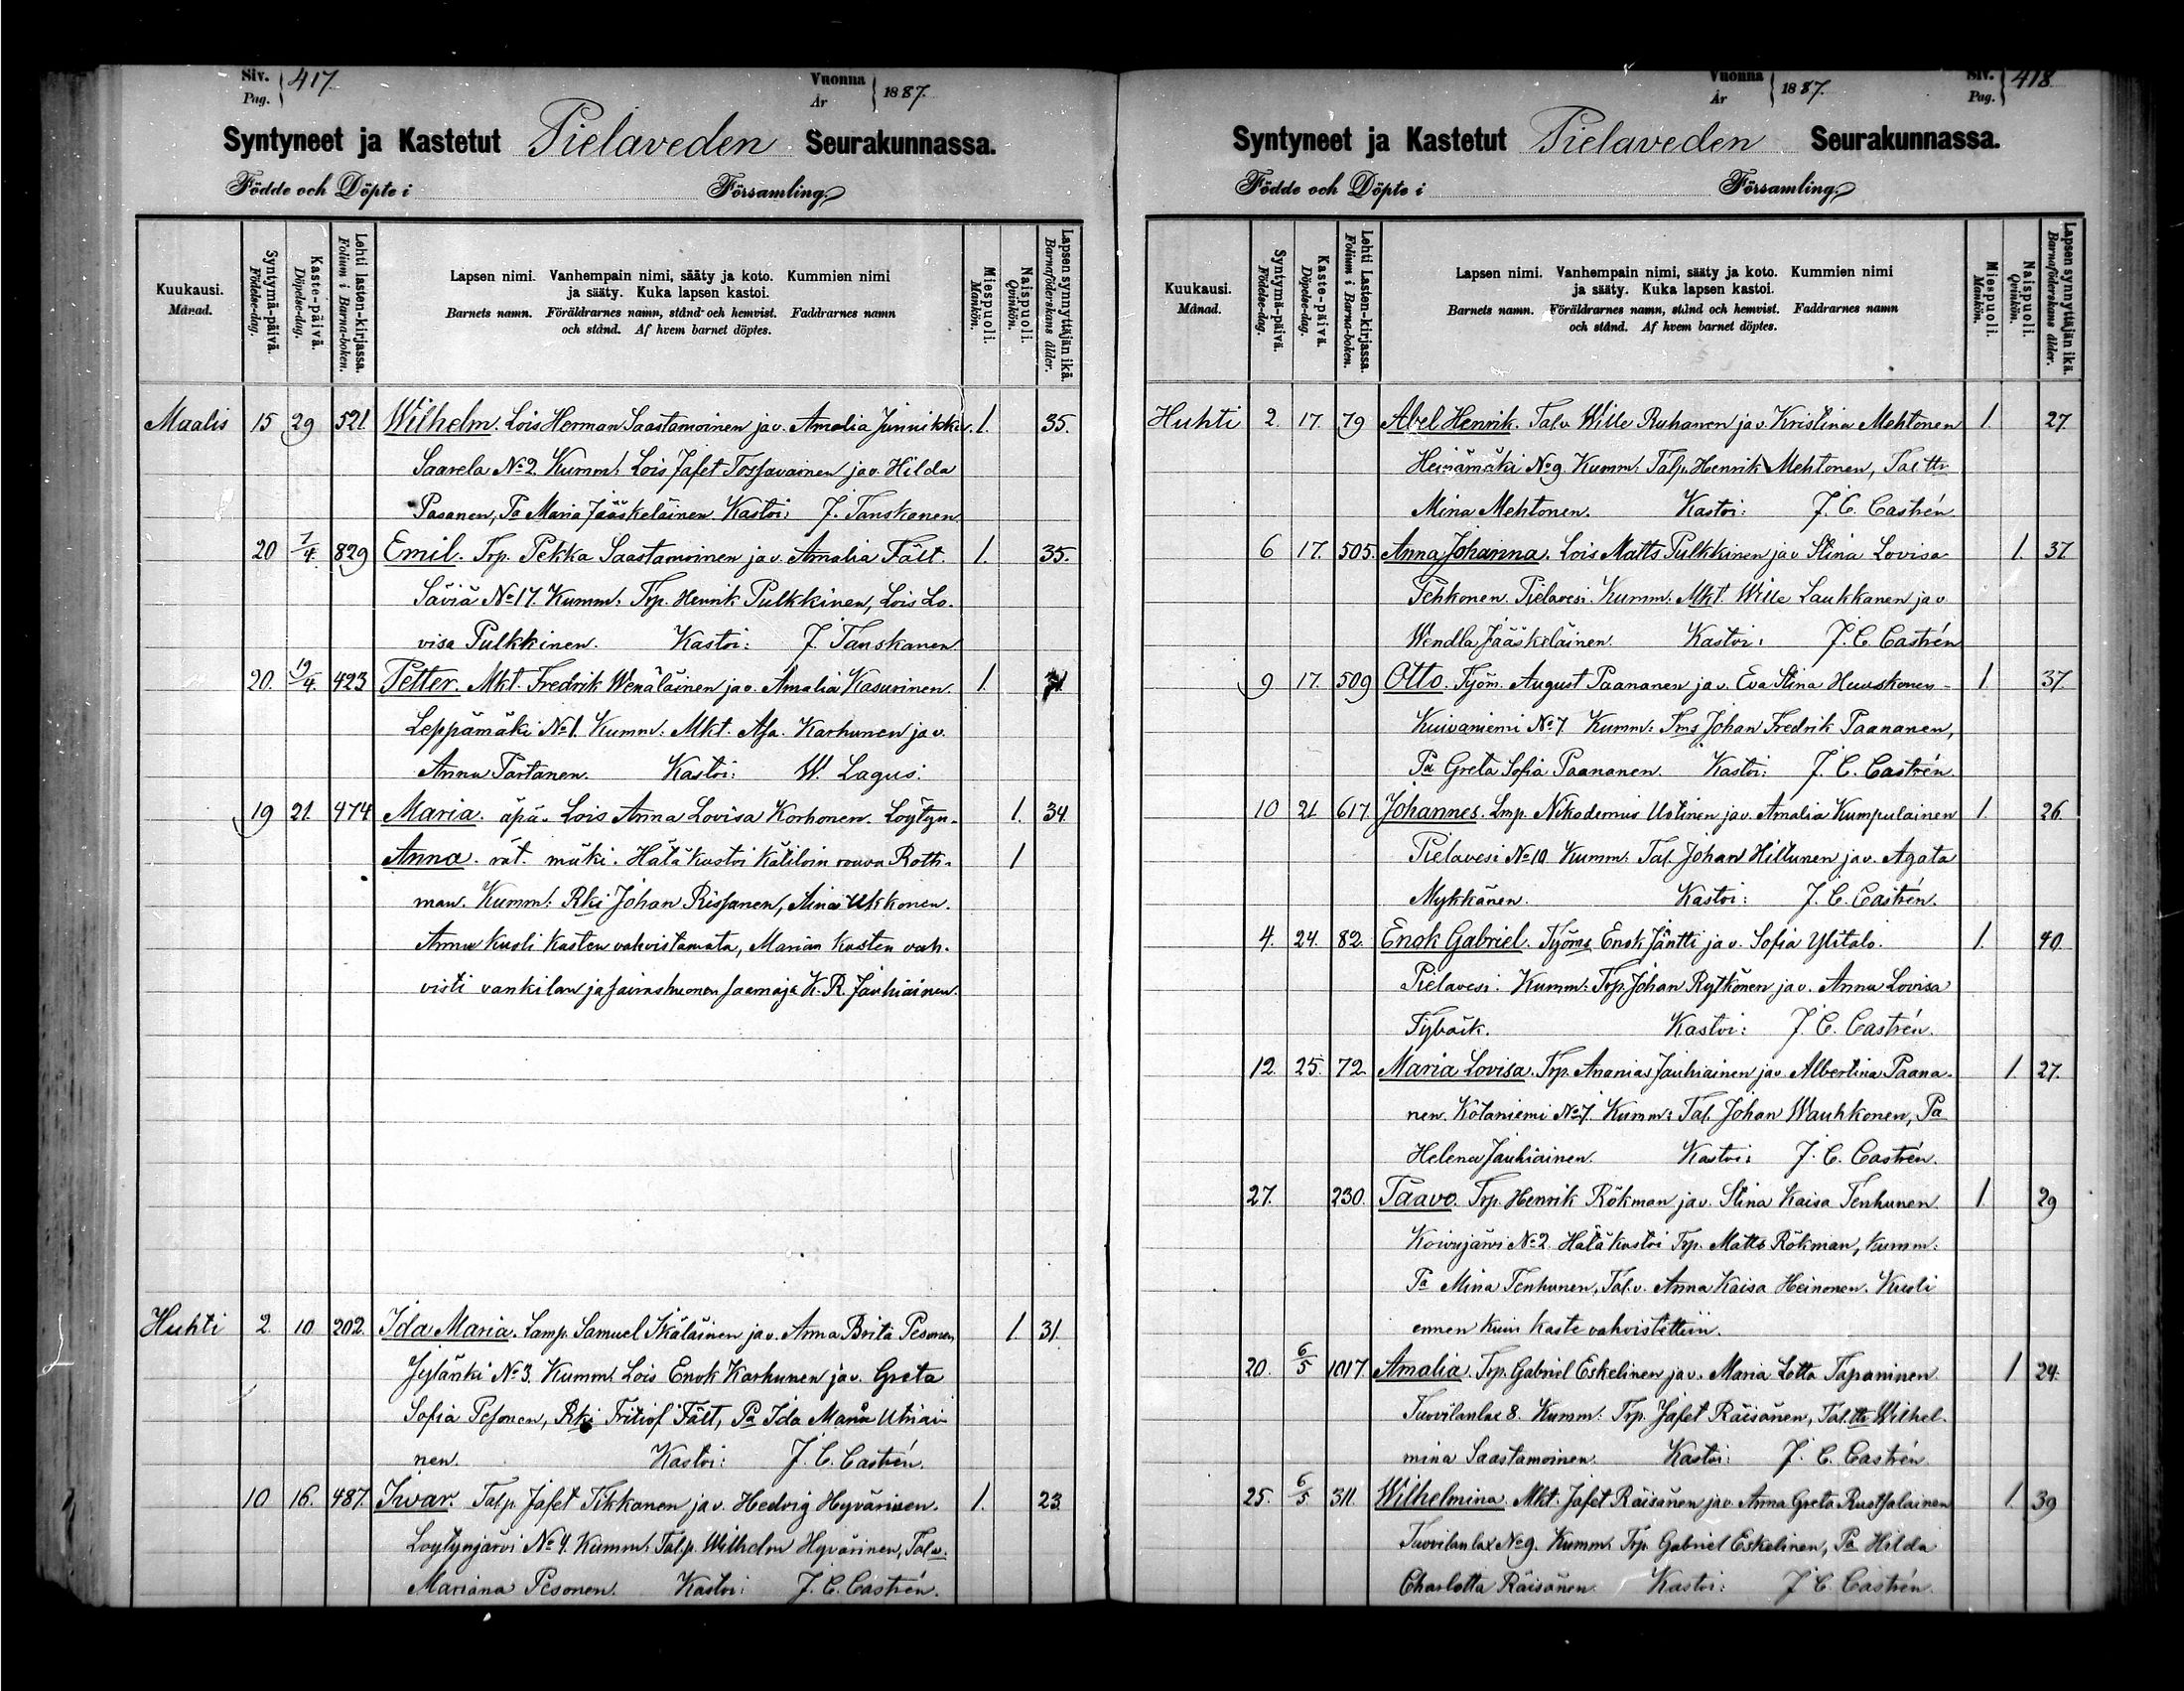 Siv. Pag. 417.
Vuonna År 1887.
Syntyneet ja Kastetut Pielaveden Seurakunnassa.
Födde och Döpte i Församling.
Kuukausi. Månad.
Syntymä-päivä. Födelse-dag.
Kaste-päivä. Döpelse-dag.
Lehti lasten-kirjassa. Folium i Barna-boken.
Lapsen nimi. Vanhempain nimi, sääty ja koto. Kummien nimi
ja sääty. Kuka lapsen kastoi.
Barnets namn. Föräldrarnes namn, stånd och hemvist. Faddrarnes namn
och stånd. Af hvem barnet döptes.
Miespuoli. Mankön.
Naispuoli. Qvinkön.
Lapsen synnyttäjän ikä. Barnaföderskans ålder.
Maalis 15 29 521 Wilhelm. Lois Herman Saastamoinen ja v. Amalia Jinnikki. 1. 35.
Saarela No 2. Kumm: Lois Jafet Tossavainen ja v. Hilda
Pasanen, Pa Maria Jääskeläinen. Kastoi: J. Tanskanen
20 1/4. 829 Emil. Trp. Pekka Saastamoinen ja v. Amalia Fält. 1. 35.
Säviä No 17. Kumm: Trp. Henrik Pulkkinen, Lois Lo-
visa Pulkkinen. Kastoi: J. Tanskanen
20. 19/4. 423 Petter. Mkt. Fredrik Wenäläinen ja v. Amalia Kasurinen. 1.
Leppämäki No 1. Kumm: Mkt. Asa. Karhunen ja v.
Anna Partanen. Kastoi: W. Lagus.
19 21. 474 Maria. äpä. Lois Anna Lovisa Korhonen. Löytyn- 1. 34.
Anna. rät. mäki. Hätäkastoi Kätilöin rouva Roth- 1
man. Kumm: Rki Johan Rissanen, Mina Ukkonen.
Anna kuoli kasten vahvistamata, Marian kasten vah-
visti vankilan ja sairashuonen saarnaja K. R. Jauhiainen.
Huhti 2. 10 202. Ida Maria. Lamp. Samuel Ikäläinen ja v. Anna Brita Pesonen 1. 31.
Jylänki No 3. Kumm: Lois Enok Karhunen ja v. Greta
Sofia Pesonen, Rki Fritiof Fält, Pa Ida Maria Utriai-
nen. Kastoi: J. C. Castrén.
10 16. 487. Iwar. Talp. Jafet Tikkanen ja v. Hedvig Hyvärinen. 1. 23.
Loytynjärvi No 4. Kumm: Talp. Wilhelm Hyvärinen, Talv.
Mariana Pesonen. Kastoi: J. C. Castrén.
Vuonna År 1887.
Siv. Pag. 418.
Syntyneet ja Kastetut Pielaveden Seurakunnassa.
Födde och Döpte i Församling.
Kuukausi. Månad.
Syntymä-päivä. Födelse-dag.
Kaste-päivä. Döpelse-dag.
Lehti Lasten-kirjassa. Folium i Barna-boken.
Lapsen nimi. Vanhempain nimi, sääty ja koto. Kummien nimi
ja sääty. Kuka lapsen kastoi.
Barnets namn. Föräldrarnes namn, stånd och hemvist. Faddrarnes namn
och stånd. Af hvem barnet döptes.
Miespuoli. Mankön.
Naispuoli. Qvinkön.
Lapsen synnyttäjän ikä. Barnaföderskans ålder.
Huhti 2. 17. 79 Abel Henrik. Talv Wille Ruhanen ja v. Kristina Mehtonen 1. 27.
Heinämäki No 9. Kumm: Talp. Henrik Mehtonen, Tal ttr
Mina Mehtonen. Kastoi: J. C. Castrén.
6 17. 505. Anna Johanna. Lois Matts Pulkkinen ja v Stina Lovisa 1. 37.
Pehkonen. Pielavesi. Kumm: Mkt. Wille Laukkanen ja v
Wendla Jääskeläinen. Kastoi: J. C. Castrén
9 17. 509 Otto. Työm. August Paananen ja v. Eva Stina Heuskonen. 1. 37.
Kuivaniemi No 7. Kumm: Tms Johan Fredrik Paananen,
Pa Greta Sofia Paananen. Kastoi: J. C. Castrén.
10 21 617. Johannes. Lmp. Nikodemus Ustinen ja v. Amalia Kumpulainen 1. 26.
Pielavesi No 10 Kumm: Tal. Johan Hiltunen ja v. Agata
Mykkänen. Kastoi: J. C. Castrén.
4. 24. 82. Enok Gabriel. Työms Enok Jäntti ja v. Sofia Ylitalo. 1. 40.
Pielavesi. Kumm: Trp. Johan Rytkönen ja v. Anna Lovisa
Tybäck. Kastoi: J. C. Castrén.
12. 25. 72. Maria Lovisa. Trp. Ananias Jauhiainen ja v. Albertina Paana- 1. 27.
nen. Kotaniemi No 7. Kumm: Tal. Johan Wauhkonen, Pa
Helena Jauhiainen. Kastoi: J. C. Castrén.
27. 230. Taavo. Trp. Henrik Rökman ja v. Stina Kaisa Tenhunen. 1. 29
Koivujärvi No 2. Hätäkastoi Trp. Matts Rökman, kumm:
Pa Mina Tenhunen, Tal.v. Anna Kaisa Heinonen. Kuoli
ennen kuin kaste vahvistettiin.
20. 6/5 1017. Amalia. Trp. Gabriel Eskelinen ja v. Maria Lotta Tapaninen 1 24.
Tuovilanlax 8. Kumm: Trp. Jafet Räisänen, Tal.ttr Wilhel-
mina Saastamoinen. Kastoi: J. C. Castrén
25. 6/5 311. Wilhelmina. Mkt. Jafet Räisänen ja v. Anna Greta Ruotsalainen 1. 39
Tuovilanlax No 9. Kumm: Trp. Gabriel Eskelinen, Pa Hilda
Charlotta Räisänen Kastoi: J. C. Castrén.